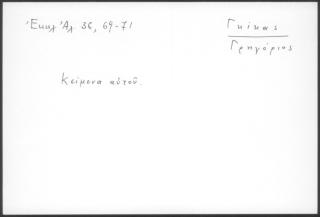 Ἐκκλ Ἀλ 36, 69-71
Γκίκας
Γρηγόριος
Κείμενα αὐτοῦ.